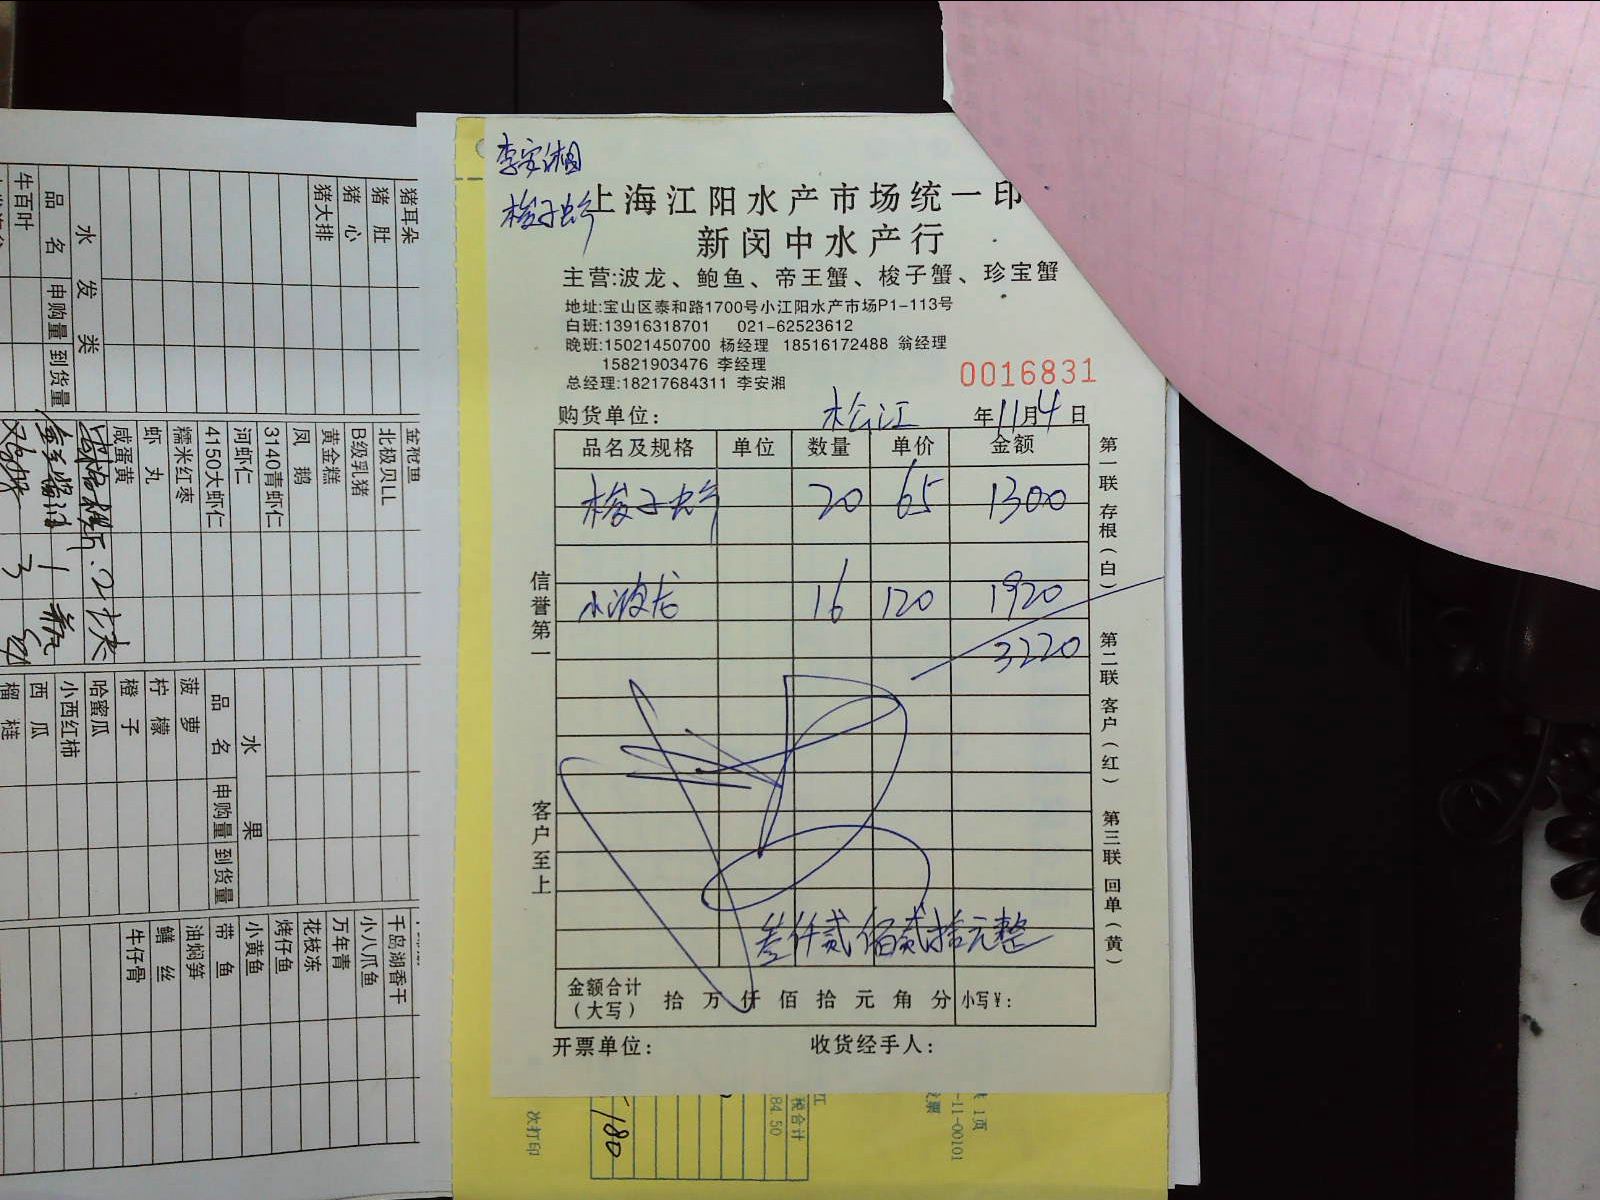 李安湘
梭子蟹
上海江阳水产市场统一印
新闵中水产行
主营:波龙、鲍鱼、帝王蟹、梭子蟹、珍宝蟹
地址:宝山区泰和路1700号小江阳水产市场P1-113号
白班:13916318701 021-62523612
晚班:15021450700 杨经理 18516172488 翁经理
15821903476 李经理
总经理:18217684311 李安湘
0016831
购货单位: 松江 年11月4日
品名及规格 单位 数量 单价 金额
梭子蟹 20 65 1300
小波龙 16 120 1920
3220
叁仟贰佰贰拾元整
金额合计(大写) 拾 万 仟 佰 拾 元 角 分 小写¥:
开票单位: 收货经手人:
信誉第一
客户至上
第一联 存根(白)
第二联 客户(红)
第三联 回单(黄)
猪耳朵
猪肚
猪心
猪大排
水发类
品名 申购量 到货量
牛百叶
北极贝LL
B级乳猪
黄金糕
凤鹅
3140青虾仁
河虾仁
4150大虾仁
糯米红枣
虾丸
咸蛋黄
水果
品名 申购量 到货量
菠萝
柠檬
橙子
哈蜜瓜
小西红柿
西瓜
榴梿
千岛湖香干
小八爪鱼
万年青
花枝冻
烤仔鱼
小黄鱼
带鱼
油焖笋
鳝丝
牛仔骨
次打印
180
税合计
84.50
1页
-11-00101